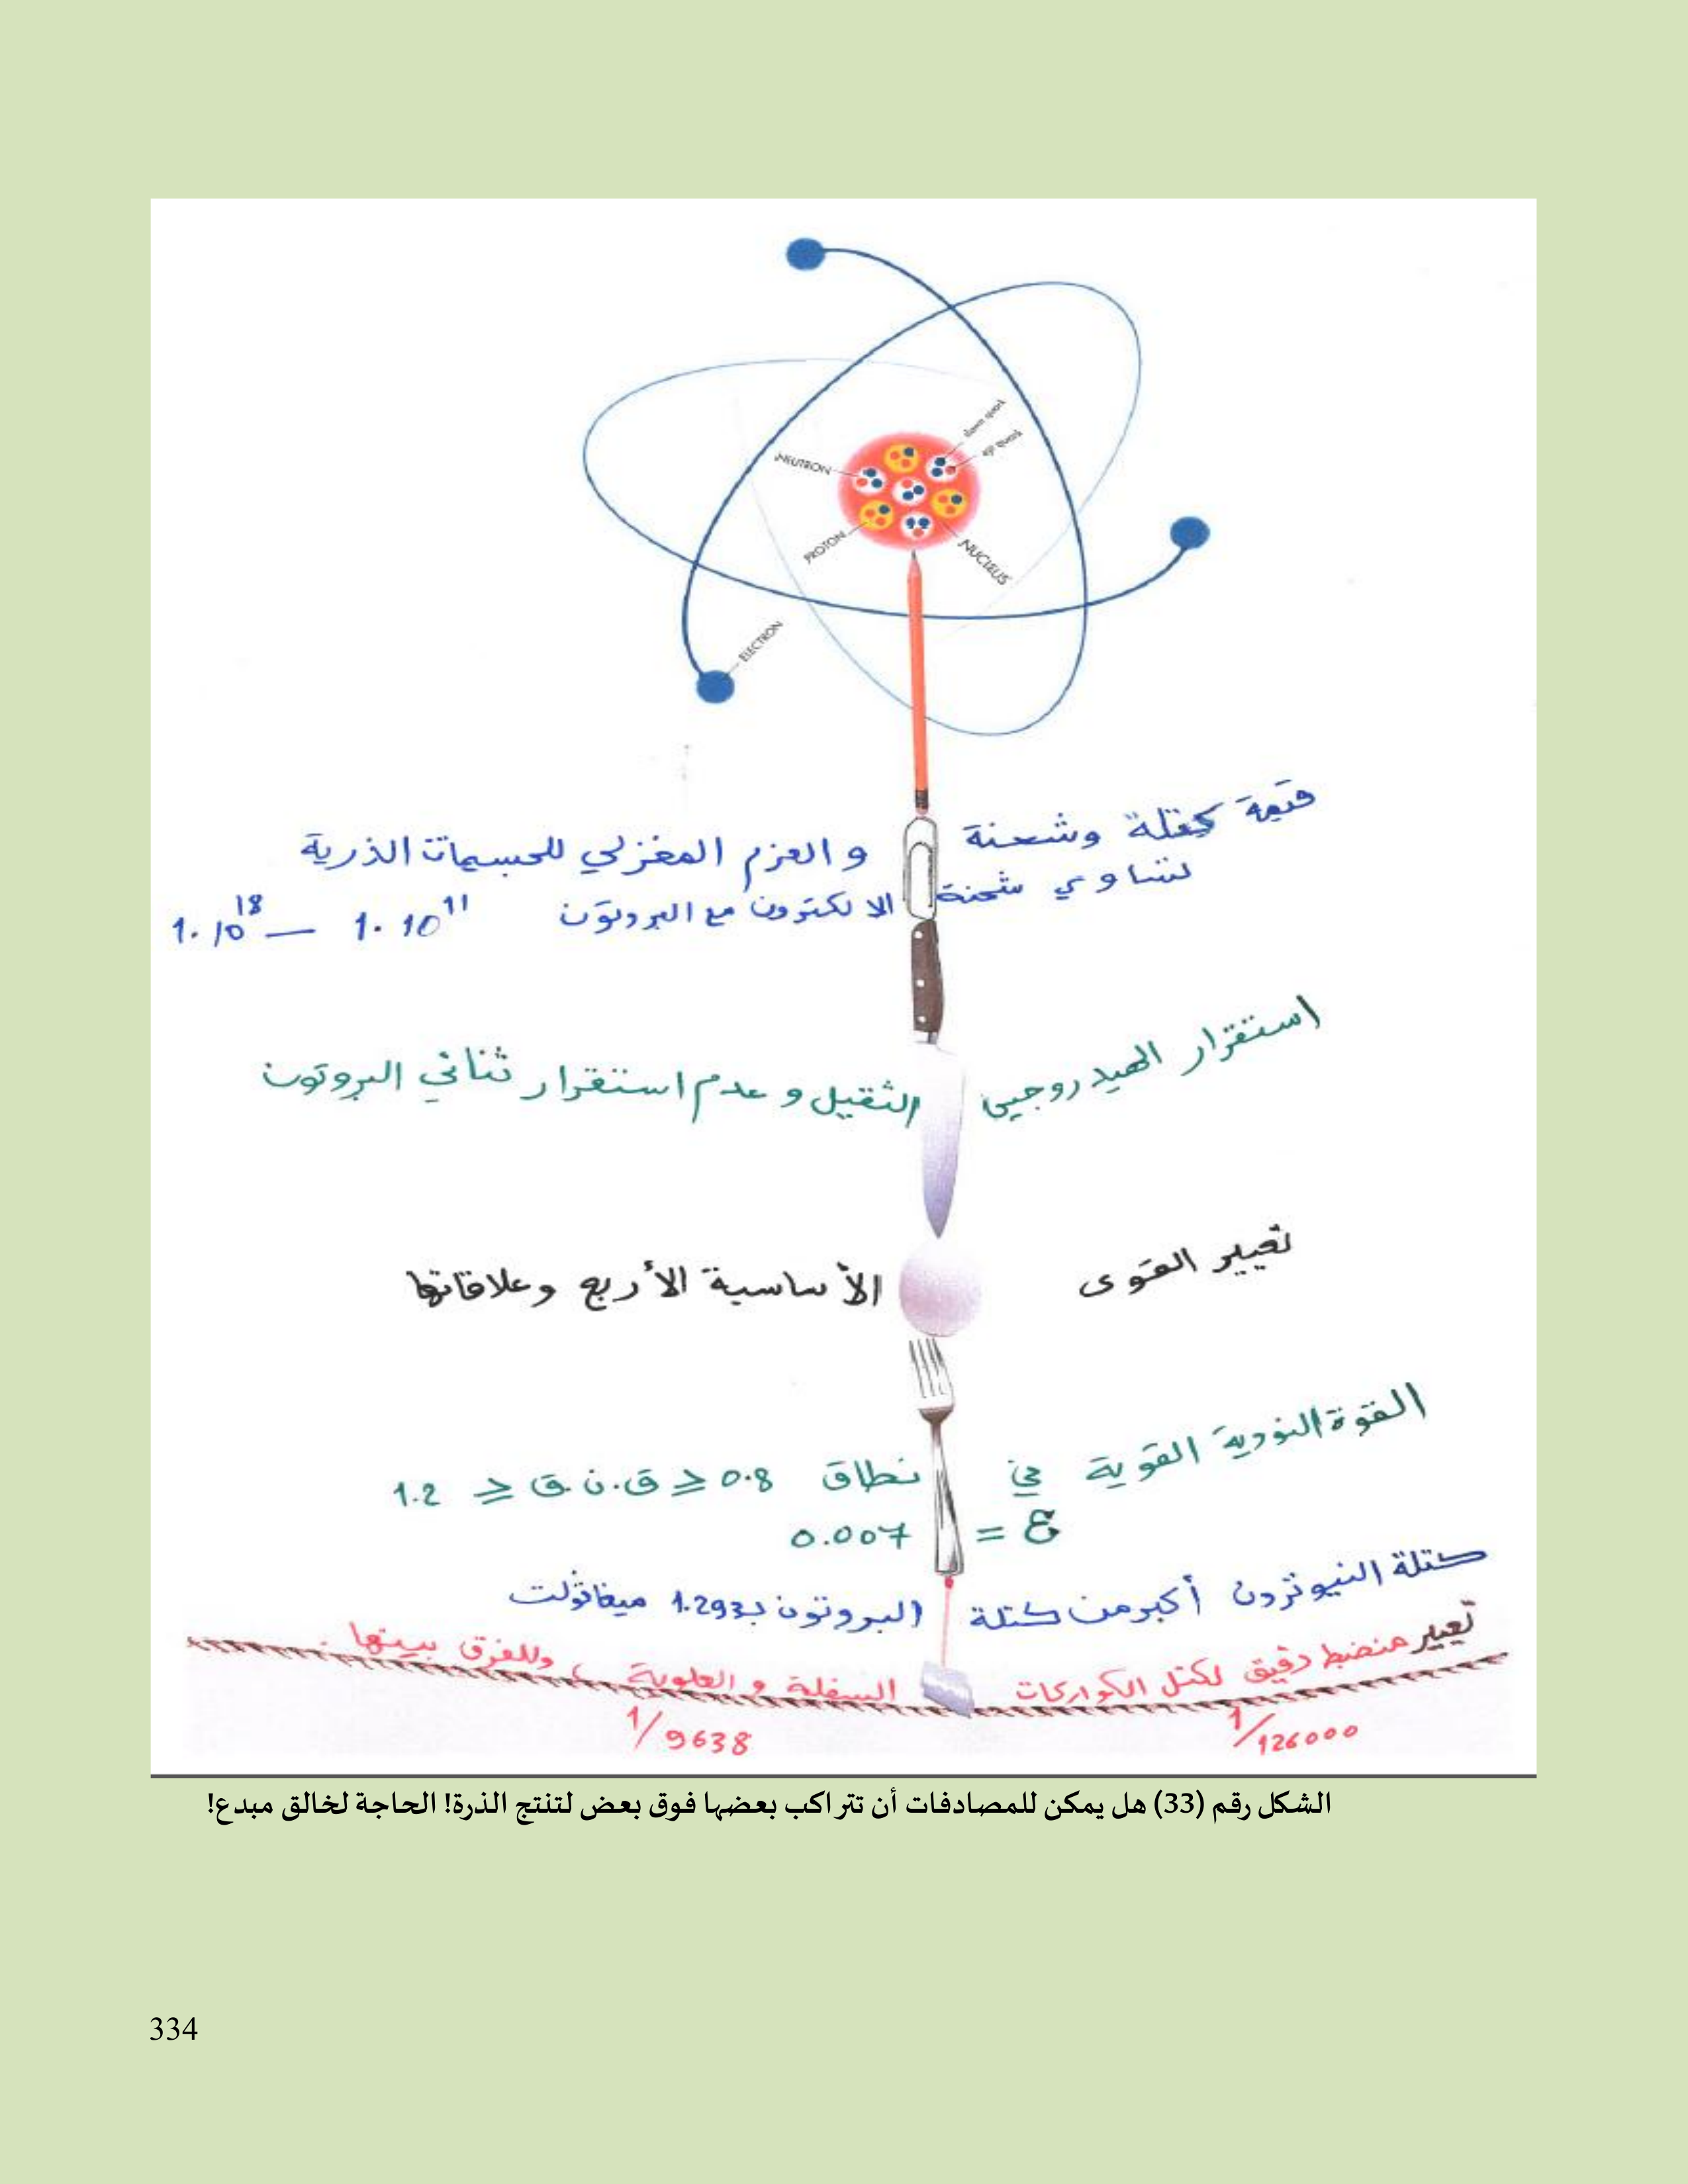 down quark
up quark
NEUTRON
PROTON
NUCLEUS
ELECTRON
قيمة كتلة وشحنة والعزم المغزلي للجسيمات الذرية
تساوي شحنة الالكترون مع البروتون 1.10¹¹ — 1.10¹⁸
استقرار الهيدروجين الثقيل وعدم استقرار ثنائي البروتون
تعيير القوى الأساسية الأربع وعلاقاتها
القوة النووية القوية في نطاق 0.8 ≤ ق.ن.ق ≤ 1.2
ع = 0.007
كتلة النيوترون أكبر من كتلة البروتون بـ 1.293 ميغافولت
تعيير منضبط دقيق لكتل الكواركات السفلة والعلوية، وللفرق بينها.
1/126000
1/9638
الشكل رقم (33) هل يمكن للمصادفات أن تتراكب بعضها فوق بعض لتنتج الذرة! الحاجة لخالق مبدع!
334